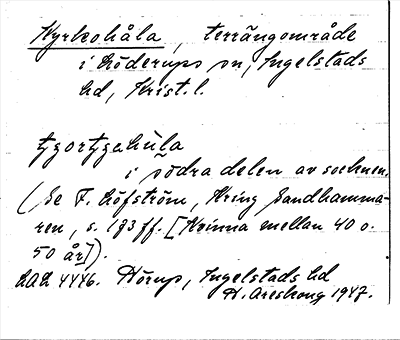 Kyrkohåla, terrängområde
i Löderups sn, Ingelstads
hd, Krist. l.
tjortjahùla
i södra delen av socknen.
(Se F. Löfström, Kring Sandhamma-
ren, s. 183 ff. [Kvinna mellan 40 o.
50 år]).
LAL 4446. Hörup, Ingelstads hd
H. Areskoug 1947.